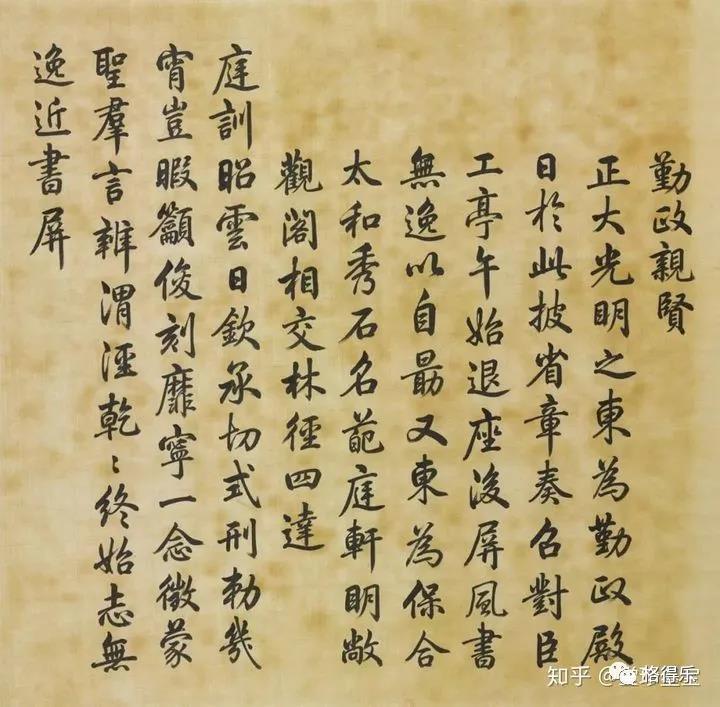 勤政親賢
正大光明之東為勤政殿
日於此披省章奏召對臣
工亭午始退座後屏風書
無逸以自勗又東為保合
太和秀石名葩庭軒明敞
觀閣相交林徑四達
庭訓昭雲日欽承切式刑勅幾
宵豈暇籲俊刻靡寧一念徵蒙
聖羣言辨渭涇乾〻終始志無
逸近書屏
知乎 @
格得乐